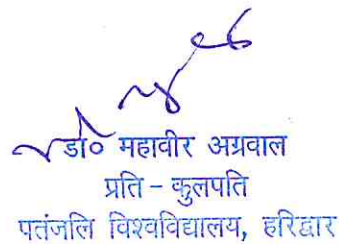 डॉ० महावीर अग्रवाल
प्रति - कुलपति
पतंजलि विश्वविद्यालय, हरिद्वार